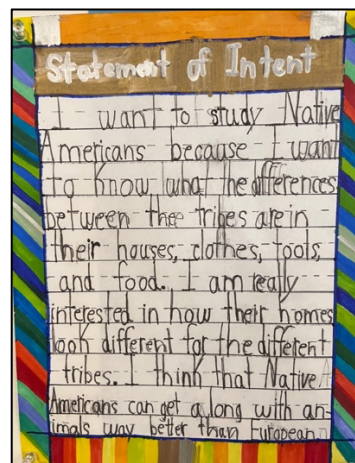 Statement of Intent
I want to study Native
Americans because I want
to know what the differences
between thee tribes are in
their houses, clothes, tools,
and food. I am really
interested in how their homes
look different for the different
tribes. I think that Native
Americans can get a long with an-
imals way better than European